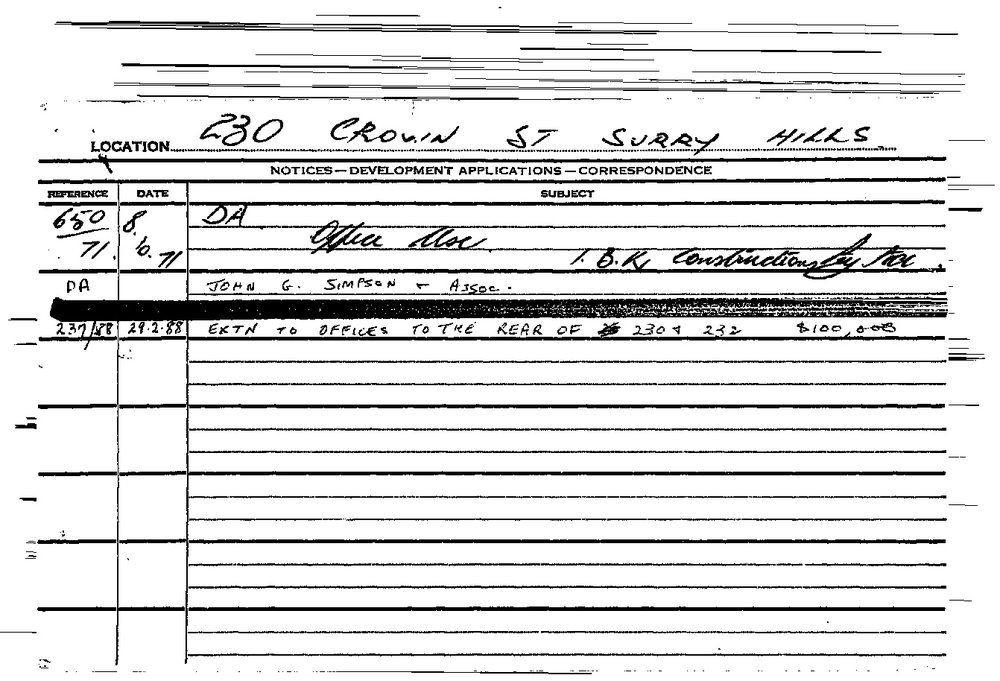 LOCATION 230 CROWN ST SURRY HILLS
NOTICES—DEVELOPMENT APPLICATIONS—CORRESPONDENCE
REFERENCE DATE SUBJECT
650/71. 8.10.71 DA
Office Use.
I.B.K. Constructions Pty
DA JOHN G. SIMPSON & ASSOC.
237/88 29.2.88 EXTN TO OFFICES TO THE REAR OF 230 & 232 $100,000